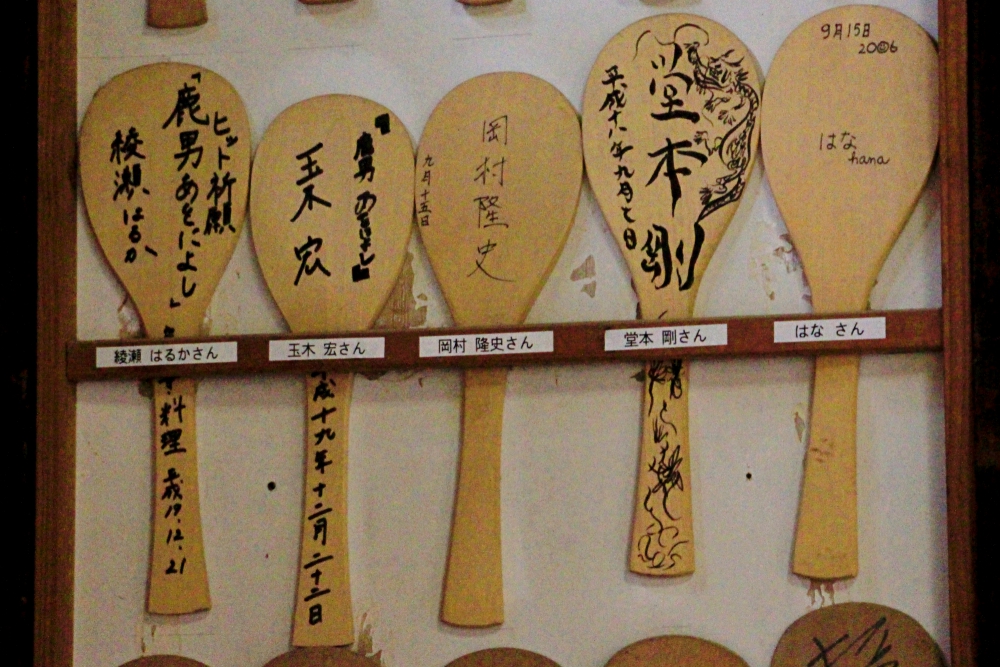 ヒット祈願
『鹿男あをによし」
綾瀬はるか
料理
平成19.12.21
綾瀬 はるかさん
『鹿男あをによし』
玉木 宏
平成十九年十二月二十二日
玉木 宏さん
岡村隆史
九月十五日
岡村 隆史さん
堂本剛
平成十八年九月七日
堂本 剛さん
9月15日
2006
はな
hana
はな さん